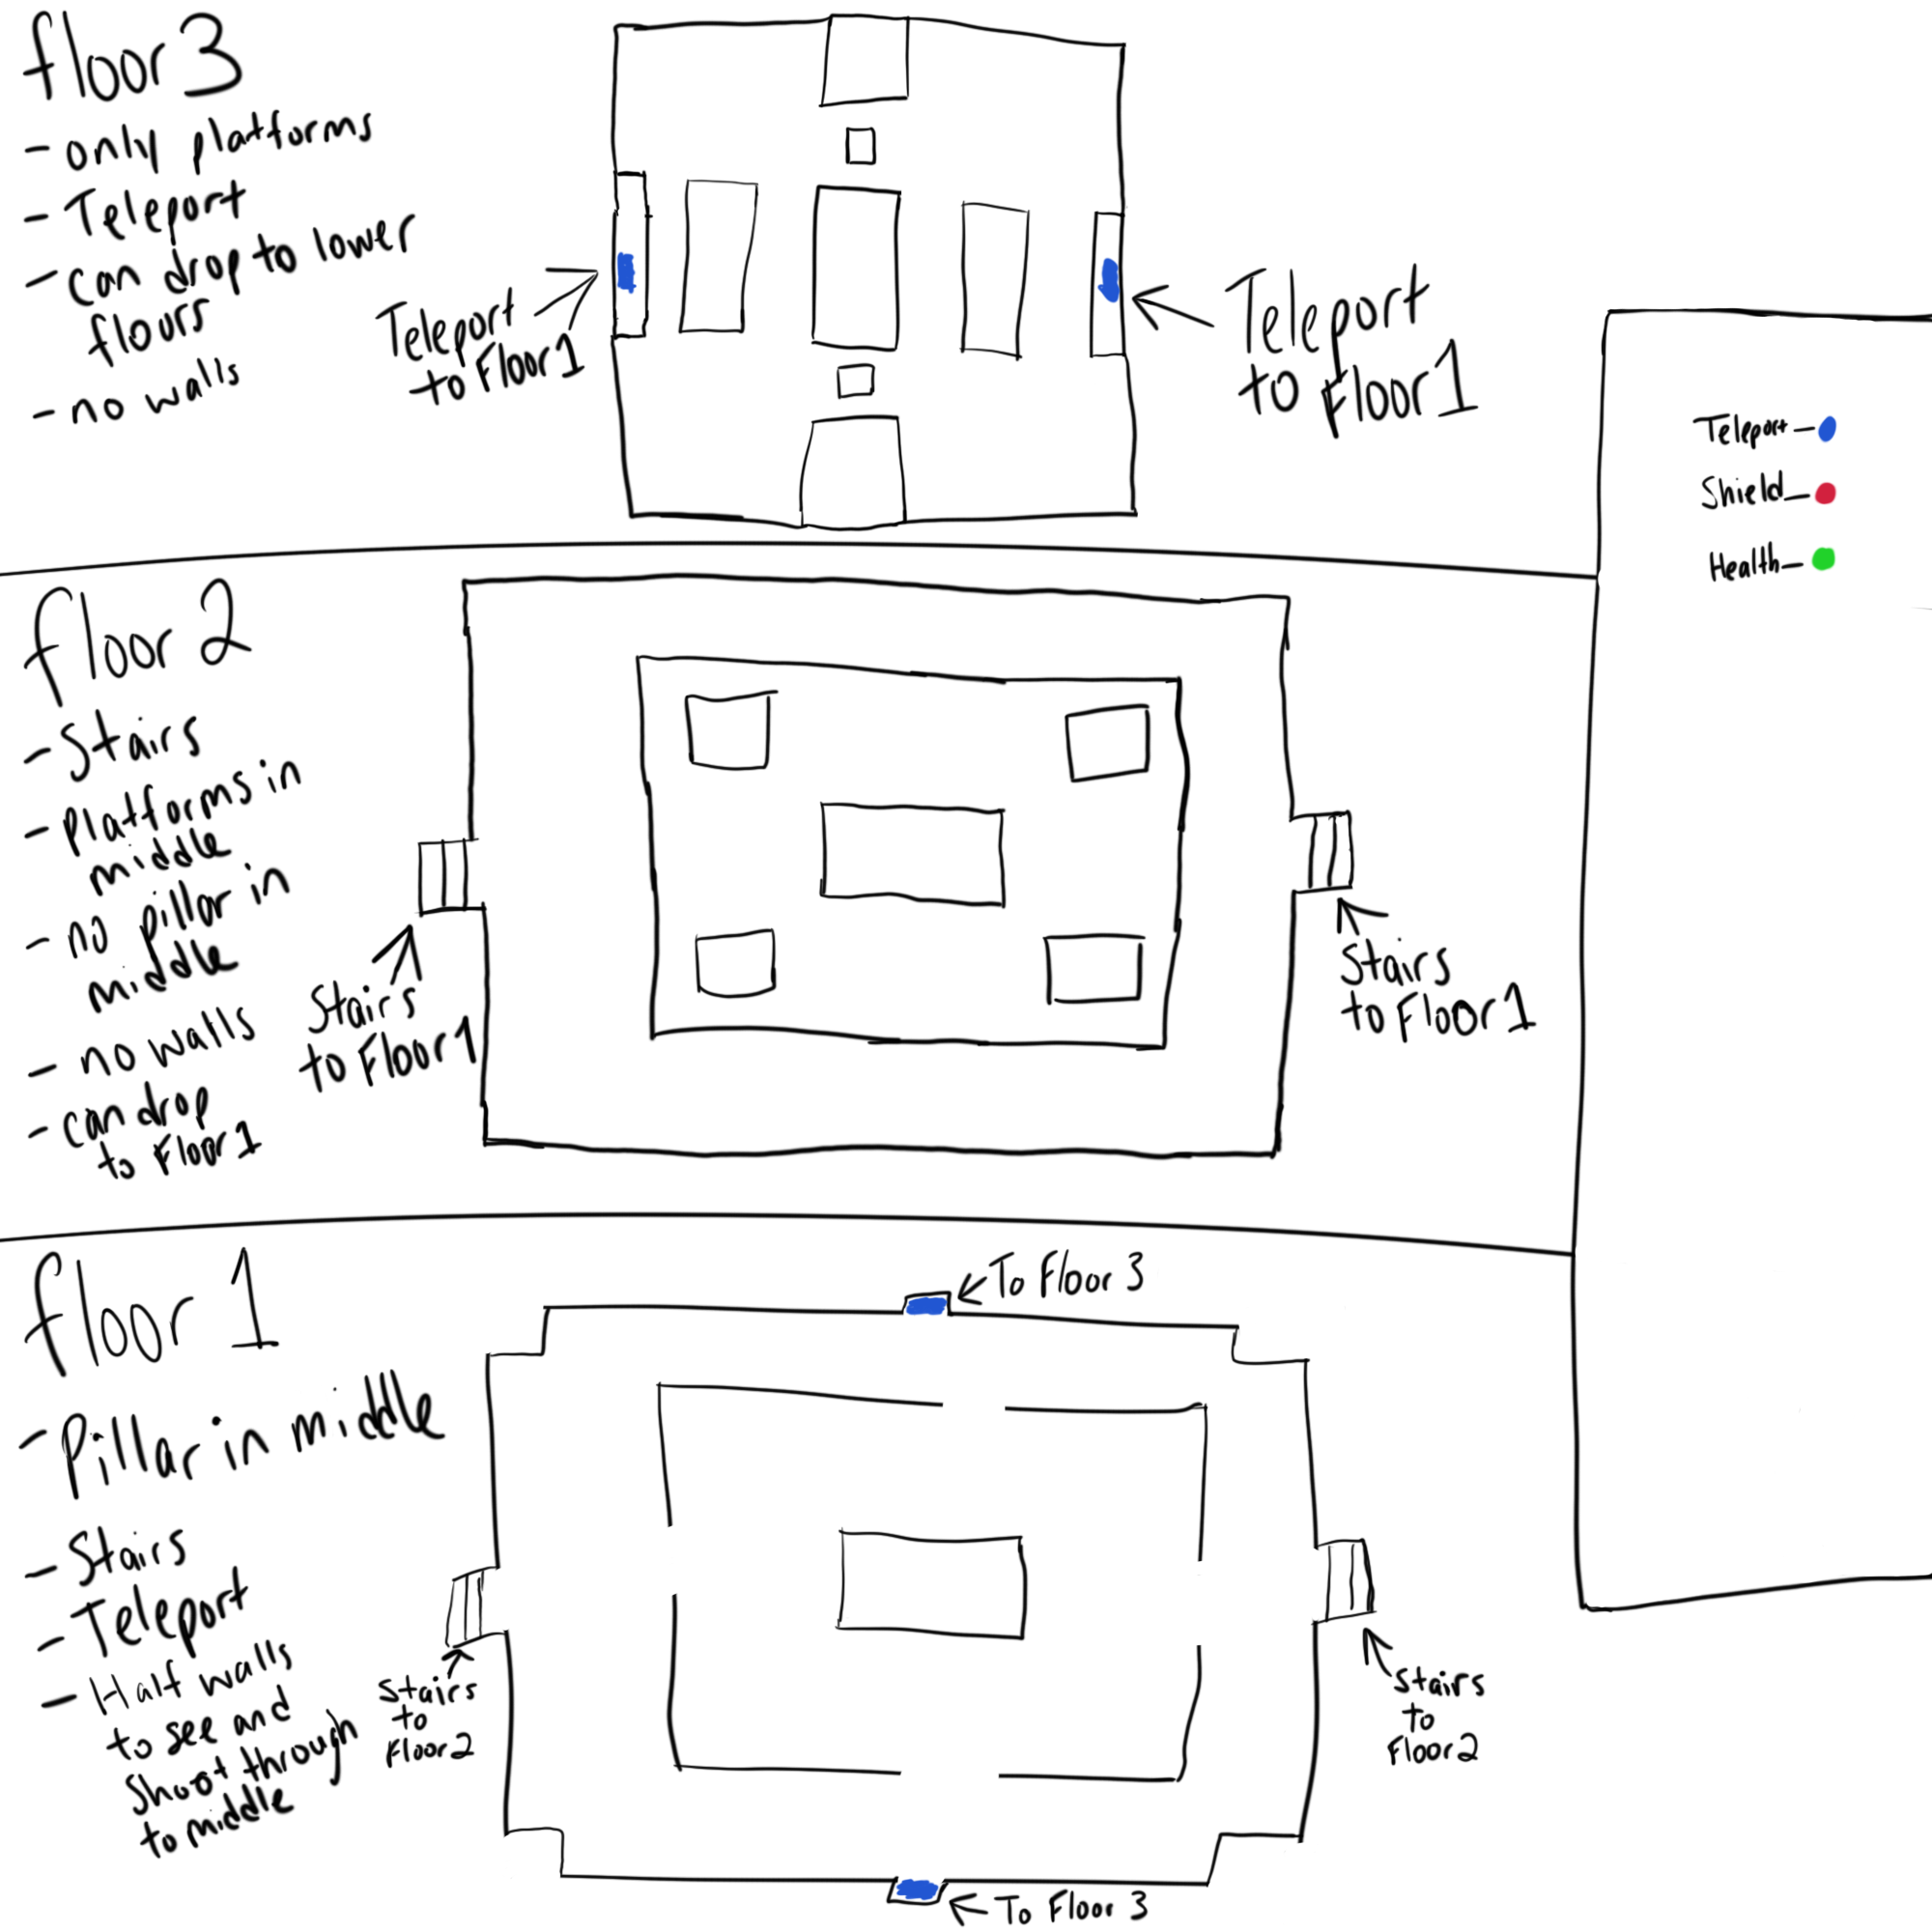 floor 3
- only platforms
- Teleport
- can drop to lower
flours
- no walls
Teleport
to Floor 1
Teleport
to Floor 1
Teleport -
Shield -
Health -
floor 2
- Stairs
- Platforms in
middle
- no pillar in
middle
- no walls
- can drop
to Floor 1
Stairs
to Floor 1
Stairs
to Floor 1
floor 1
- Pillar in middle
- Stairs
- Teleport
- Half walls
to see and
shoot through
to middle
To Floor 3
Stairs
to
Floor 2
Stairs
to
Floor 2
To Floor 3